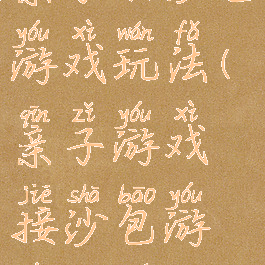 yóu xì wán fǎ
游戏玩法(
qīn zǐ yóu xì
亲子游戏
jiē shā bāo yóu
接沙包游